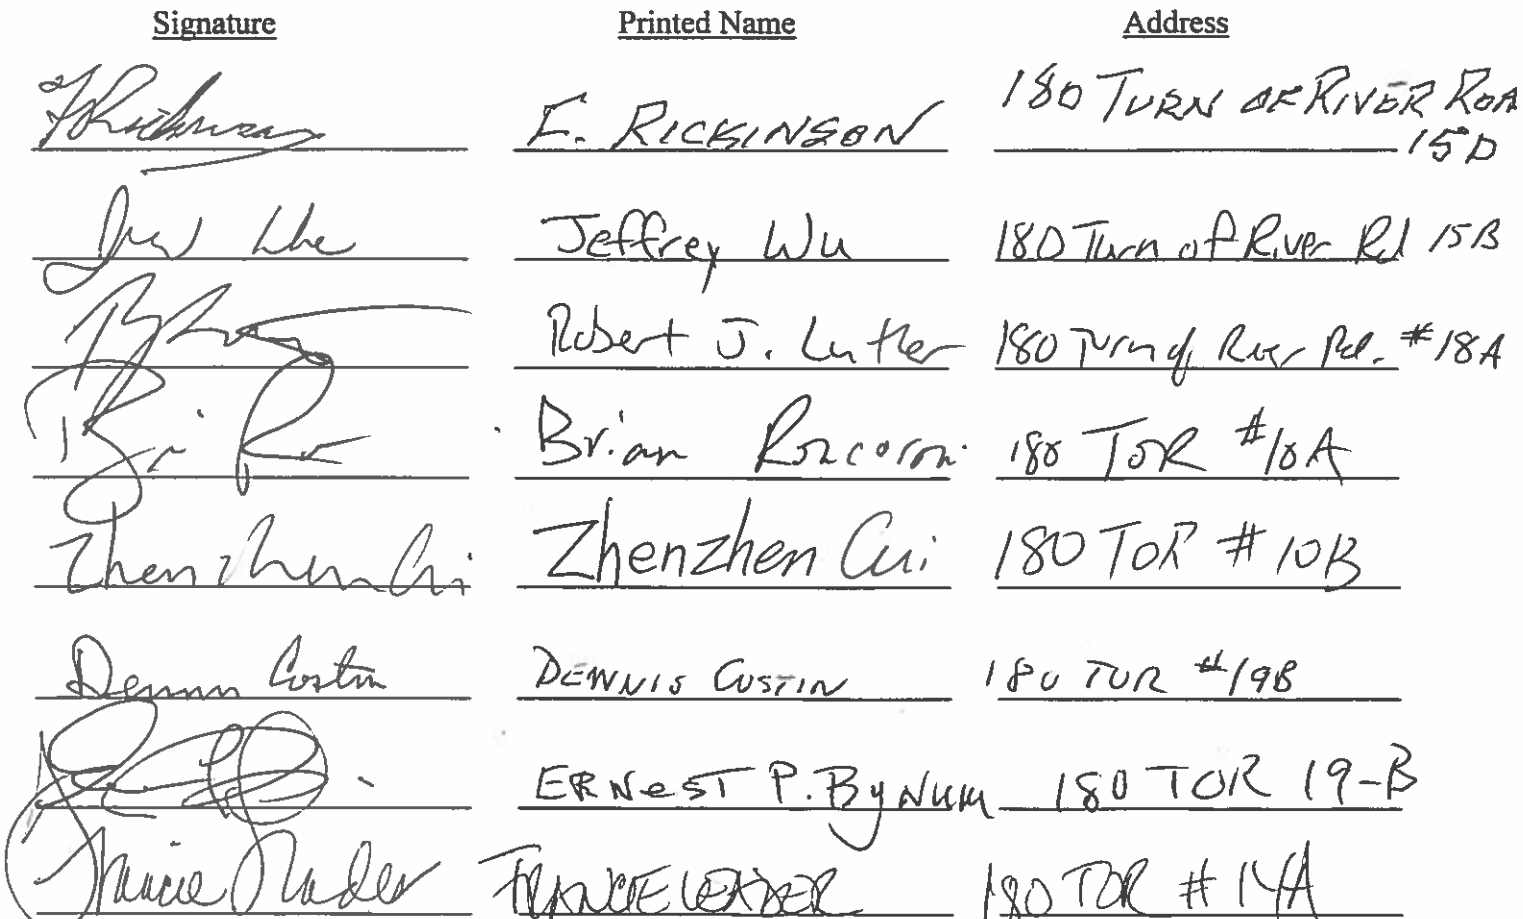 Signature Printed Name Address
E. RICKINSON 180 TURN OF RIVER ROA
15D
Jeffrey Wu 180 Turn of River Rd 15B
Robert J. Luther 180 Turn of River Rd. #18A
Brian Roncoroni 180 TOR #10A
Zhenzhen Cui Zhenzhen Cui 180 TOR # 10B
Dennis Costin DENNIS COSTIN 180 TOR #19B
ERNEST P. BYNUM 180 TOR 19-B
Francie Leader FRANCIE LEADER 180 TOR # 14A